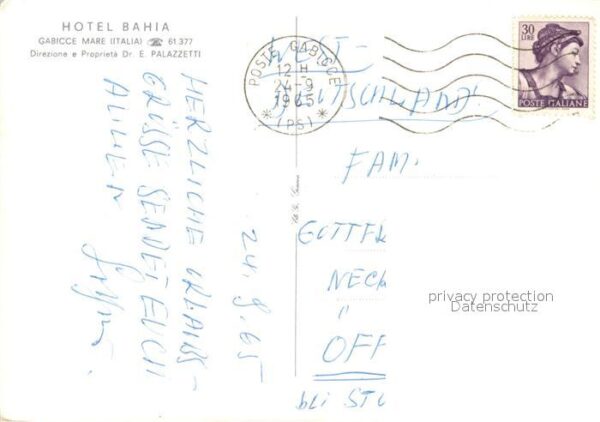 HOTEL BAHIA
GABICCE MARE (ITALIA) ☎ 61 377
Direzione e Proprietà Dr. E. PALAZZETTI
HERZLICHE URLAUBS-
GRÜSSE SENDET EUCH
ALLEN
24.9.65
POSTE GABICCE
12 H
24-9
1965
(PS)
30
LIRE
POSTE ITALIANE
WEST-
DEUTSCHLAND
FAM.
GOTTF
NECK
"
OFF
bli STU
privacy protection
Datenschutz